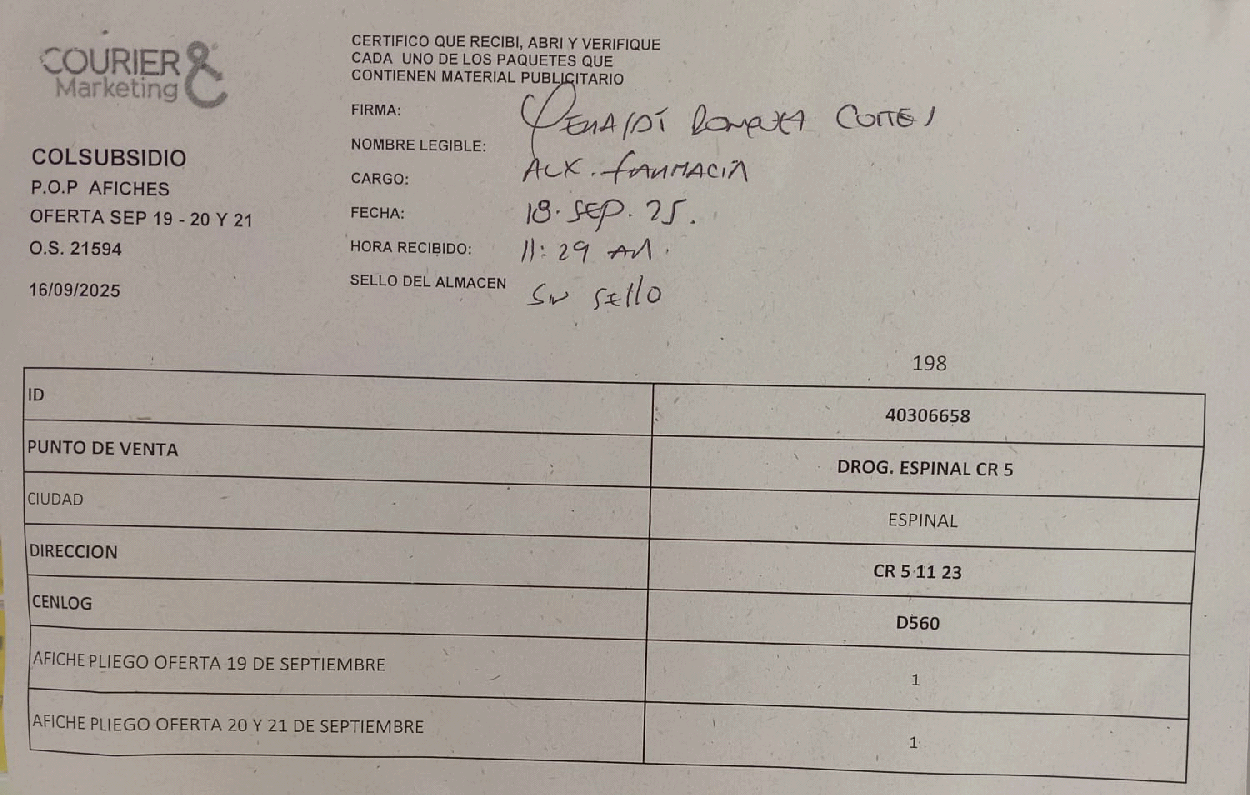 COURIER &
Marketing
COLSUBSIDIO
P.O.P AFICHES
OFERTA SEP 19 - 20 Y 21
O.S. 21594
16/09/2025
CERTIFICO QUE RECIBI, ABRI Y VERIFIQUE
CADA UNO DE LOS PAQUETES QUE
CONTIENEN MATERIAL PUBLICITARIO
FIRMA:
NOMBRE LEGIBLE:
CARGO: AUX. farmacia
FECHA: 18. SEP. 25.
HORA RECIBIDO: 11:29 AM.
SELLO DEL ALMACEN Sin sello
198
ID 40306658
PUNTO DE VENTA DROG. ESPINAL CR 5
CIUDAD ESPINAL
DIRECCION CR 5 11 23
CENLOG D560
AFICHE PLIEGO OFERTA 19 DE SEPTIEMBRE 1
AFICHE PLIEGO OFERTA 20 Y 21 DE SEPTIEMBRE 1